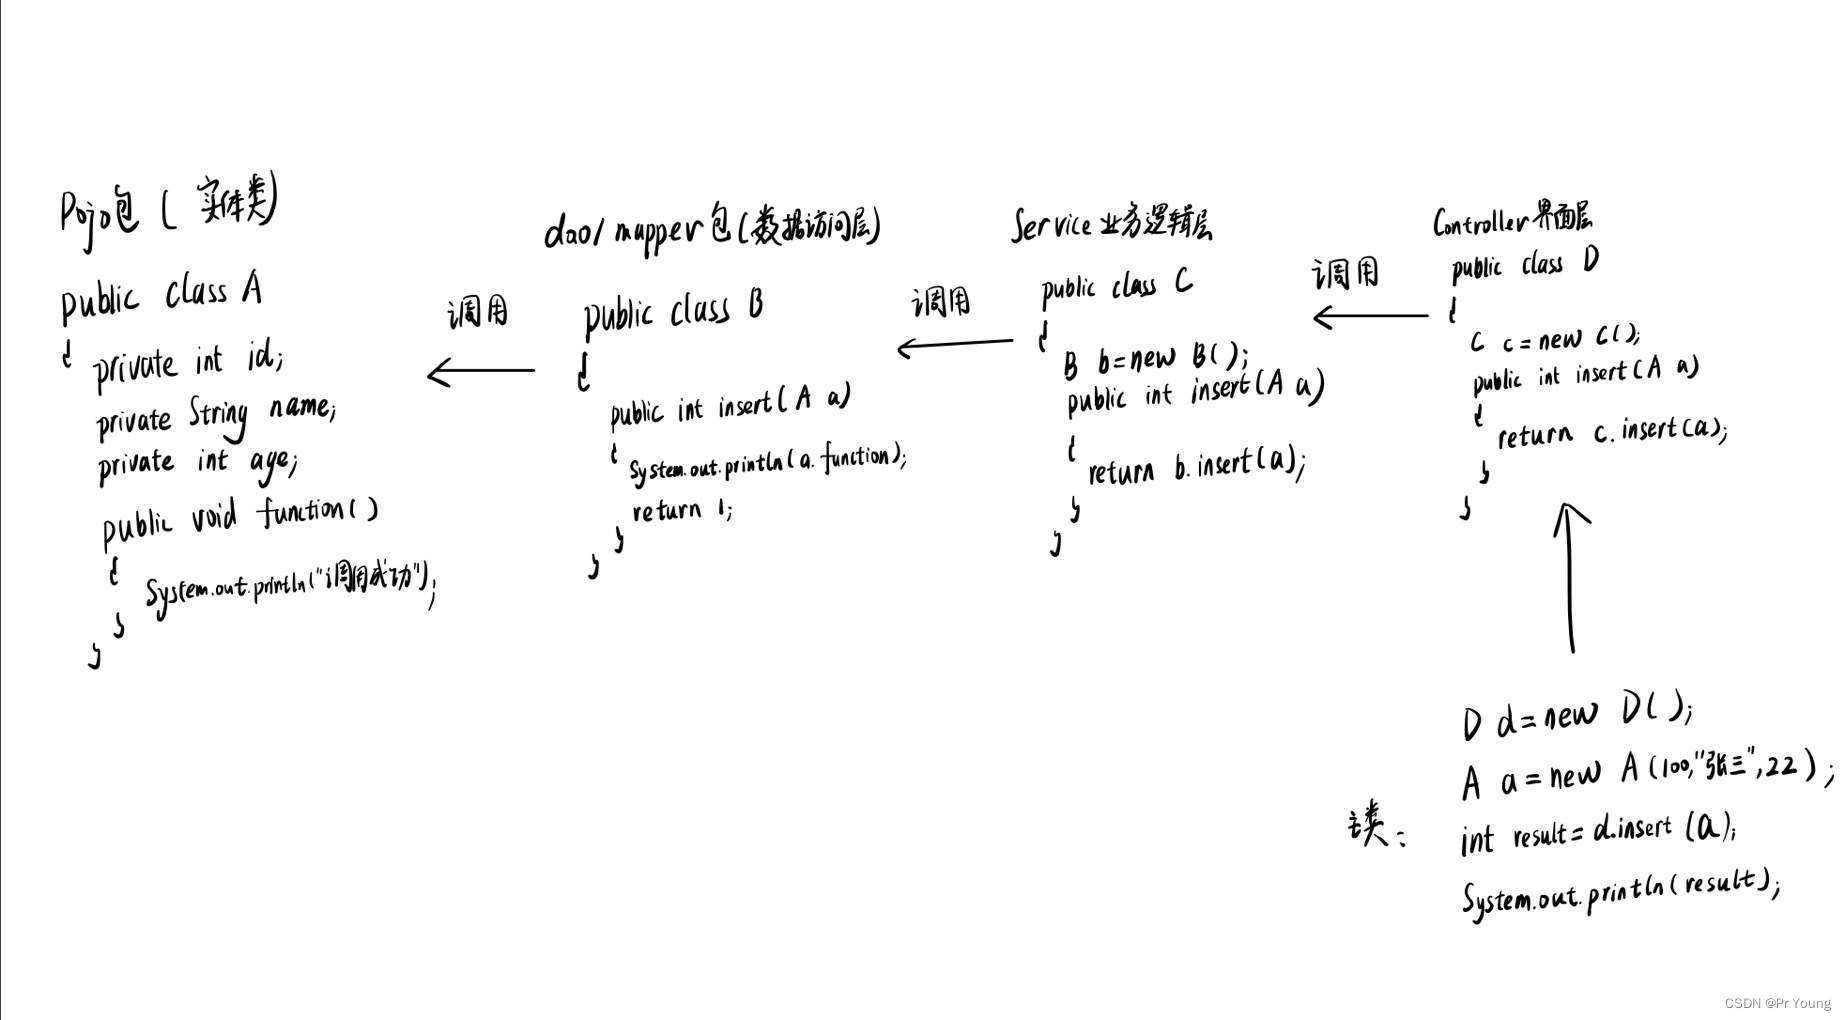 Pojo包 ( 实体类)
public class A
{
private int id;
private String name;
private int age;
public void function()
{
System.out.println("调用成功");
}
}
调用
dao/mapper包(数据访问层)
public class B
{
public int insert(A a)
{
System.out.println(a.function);
return 1;
}
}
调用
Service业务逻辑层
public class C
{
B b=new B();
public int insert(A a)
{
return b.insert(a);
}
}
调用
Controller界面层
public class D
{
C c=new C();
public int insert(A a)
{
return c.insert(a);
}
}
主类:
D d=new D();
A a=new A(100,"张三",22);
int result=d.insert(a);
System.out.println(result);
CSDN @Pr Young